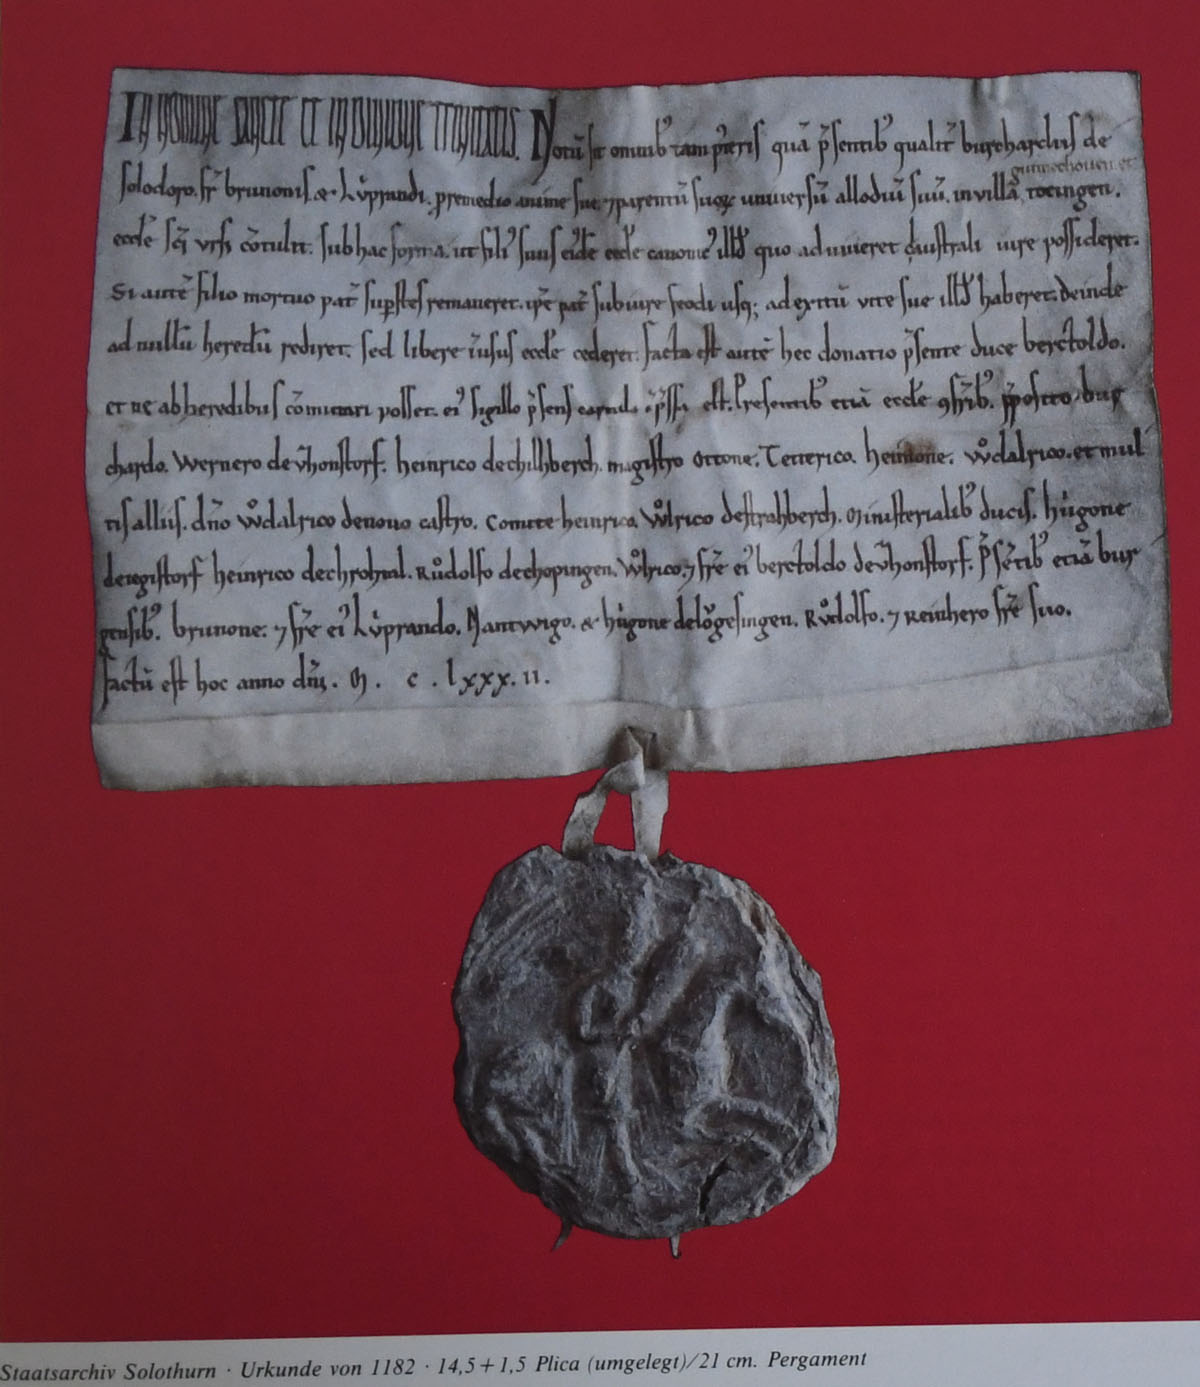 IN NOMINE SANCTE ET INDIVIDUE TRINITATIS. Notū sit omnibꝰ tam p̄teris quā p̄sentibꝰ qualit̄ burchardus de
gunnechouen et
solodoro. fr̄ brunonis & Lu̓prandi. ꝓ remedio anime sue ⁊ parentū suoꝝ uniuersū allodiū suū. in villa tocingen.
eccl̄e sc̄i vrsi cōtulit. sub hac forma. ut filiꝰ suus eid̄ē eccl̄e canonicꝰ illđ quo ad uiueret claustrali iure possideret.
Si autē filio mortuo pat̄ suꝑstes remaneret. ip̄e pat̄ sub iure feodi usq; ad exitū vite sue illđ haberet. deinde
ad nullū heredū rediret. sed libere in usus eccl̄e cederet. facta est autē hec donatio p̄sente duce berctoldo.
et ne ab heredibus cōmutari posset. eiꝰ sigillo p̄sens est. Presentibꝰ etiā eccl̄e ꝯfr̄ibꝰ. p̄posito bur
chardo. Wernero de v̊honstorf. heinrico de chilhberch. magistro Ottone. Teterico. heimone. Wͦdalrico. et mul
tis aliis. dn̄o Wͦdalrico de nouo castro. Comite heinrico. Wͦlrico de strahberch. Ministerialibꝰ ducis. hůgone
de iegistorf heinrico de chrohtal. Rͦudolfo de chopingen. Wͦlrico. ⁊ fr̄e eiꝰ berctoldo de v̊honstorf. p̄sētibꝰ etiā bur
gensibꝰ. brunone. ⁊ fr̄e eiꝰ Lu̓prando. Nantwigo. & hůgone de lo̊gesingen. Rͦudolfo. ⁊ Reinhero fr̄e suo.
factū est hoc anno dn̄i. M. c. lxxx. 11.
Staatsarchiv Solothurn · Urkunde von 1182 · 14,5 + 1,5 Plica (umgelegt)/21 cm. Pergament